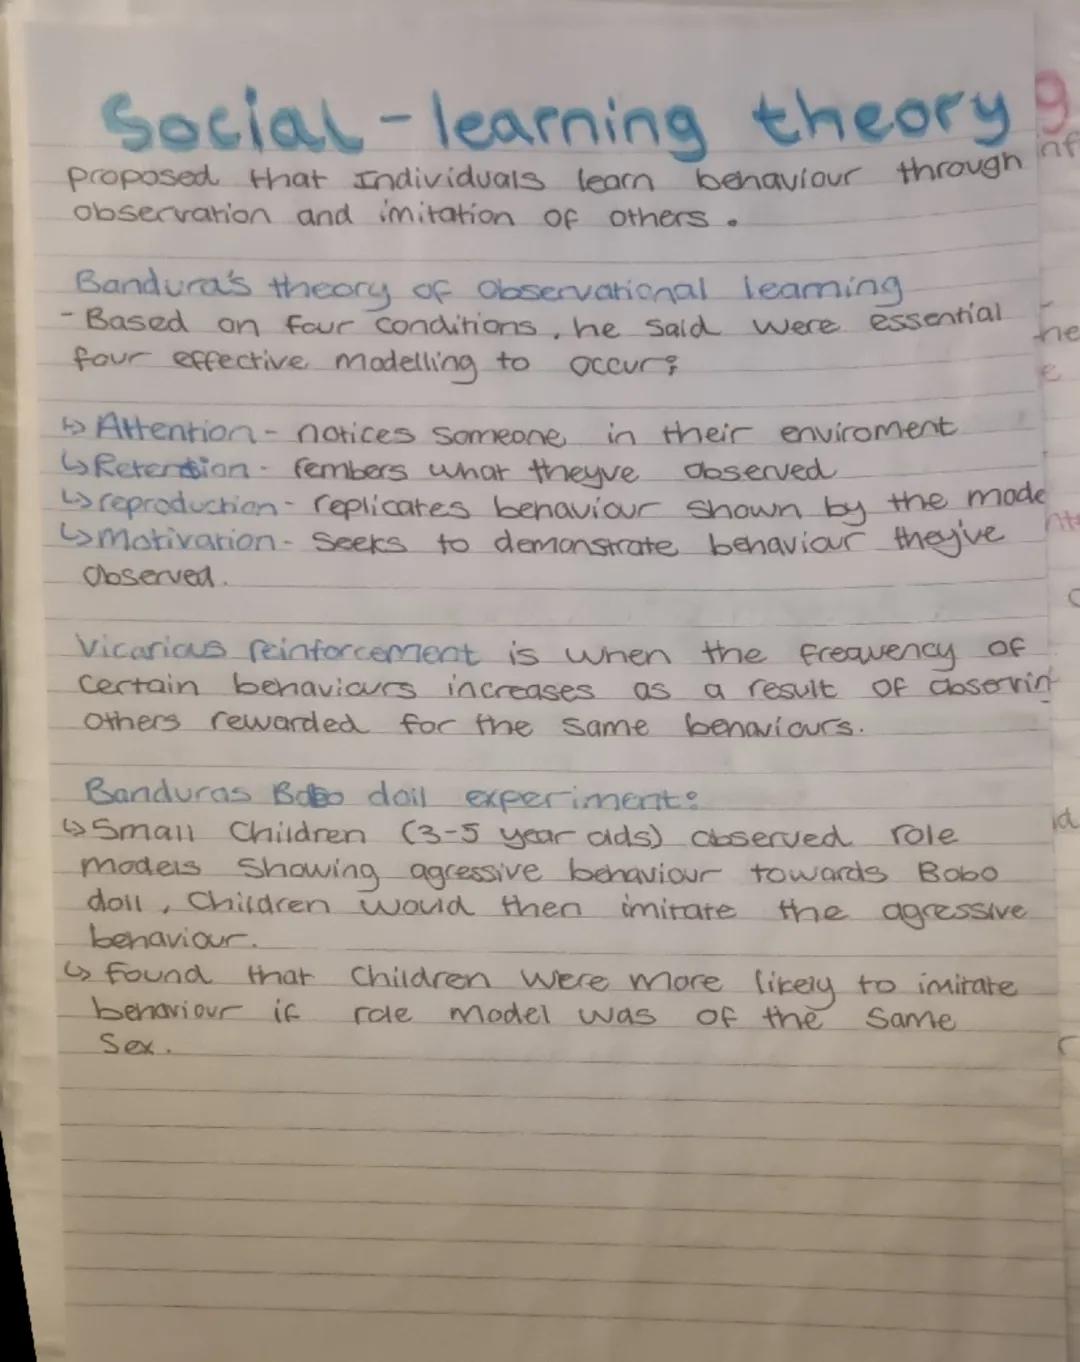 Social-learning theory
proposed that Individuals learn behaviour through
observation and imitation of others.
Bandura's theory of observational learning
- Based on four conditions, he said were essential
four effective modelling to occur:
↳ Attention - notices someone in their enviroment
↳ Retention - rembers what theyve observed
↳ reproduction - replicates behaviour shown by the mode
↳ Motivation - Seeks to demonstrate behaviour they've
observed.
Vicarious reinforcement is when the frequency of
certain behaviours increases as a result of observin
others rewarded for the same behaviours.
Banduras Bobo doll experiment:
↳ Small Children (3-5 year olds) observed role
models Showing agressive behaviour towards Bobo
doll, Children would then imitate the agressive
behaviour.
↳ found that Children were more likely to imitate
behaviour if role model was of the Same
Sex.